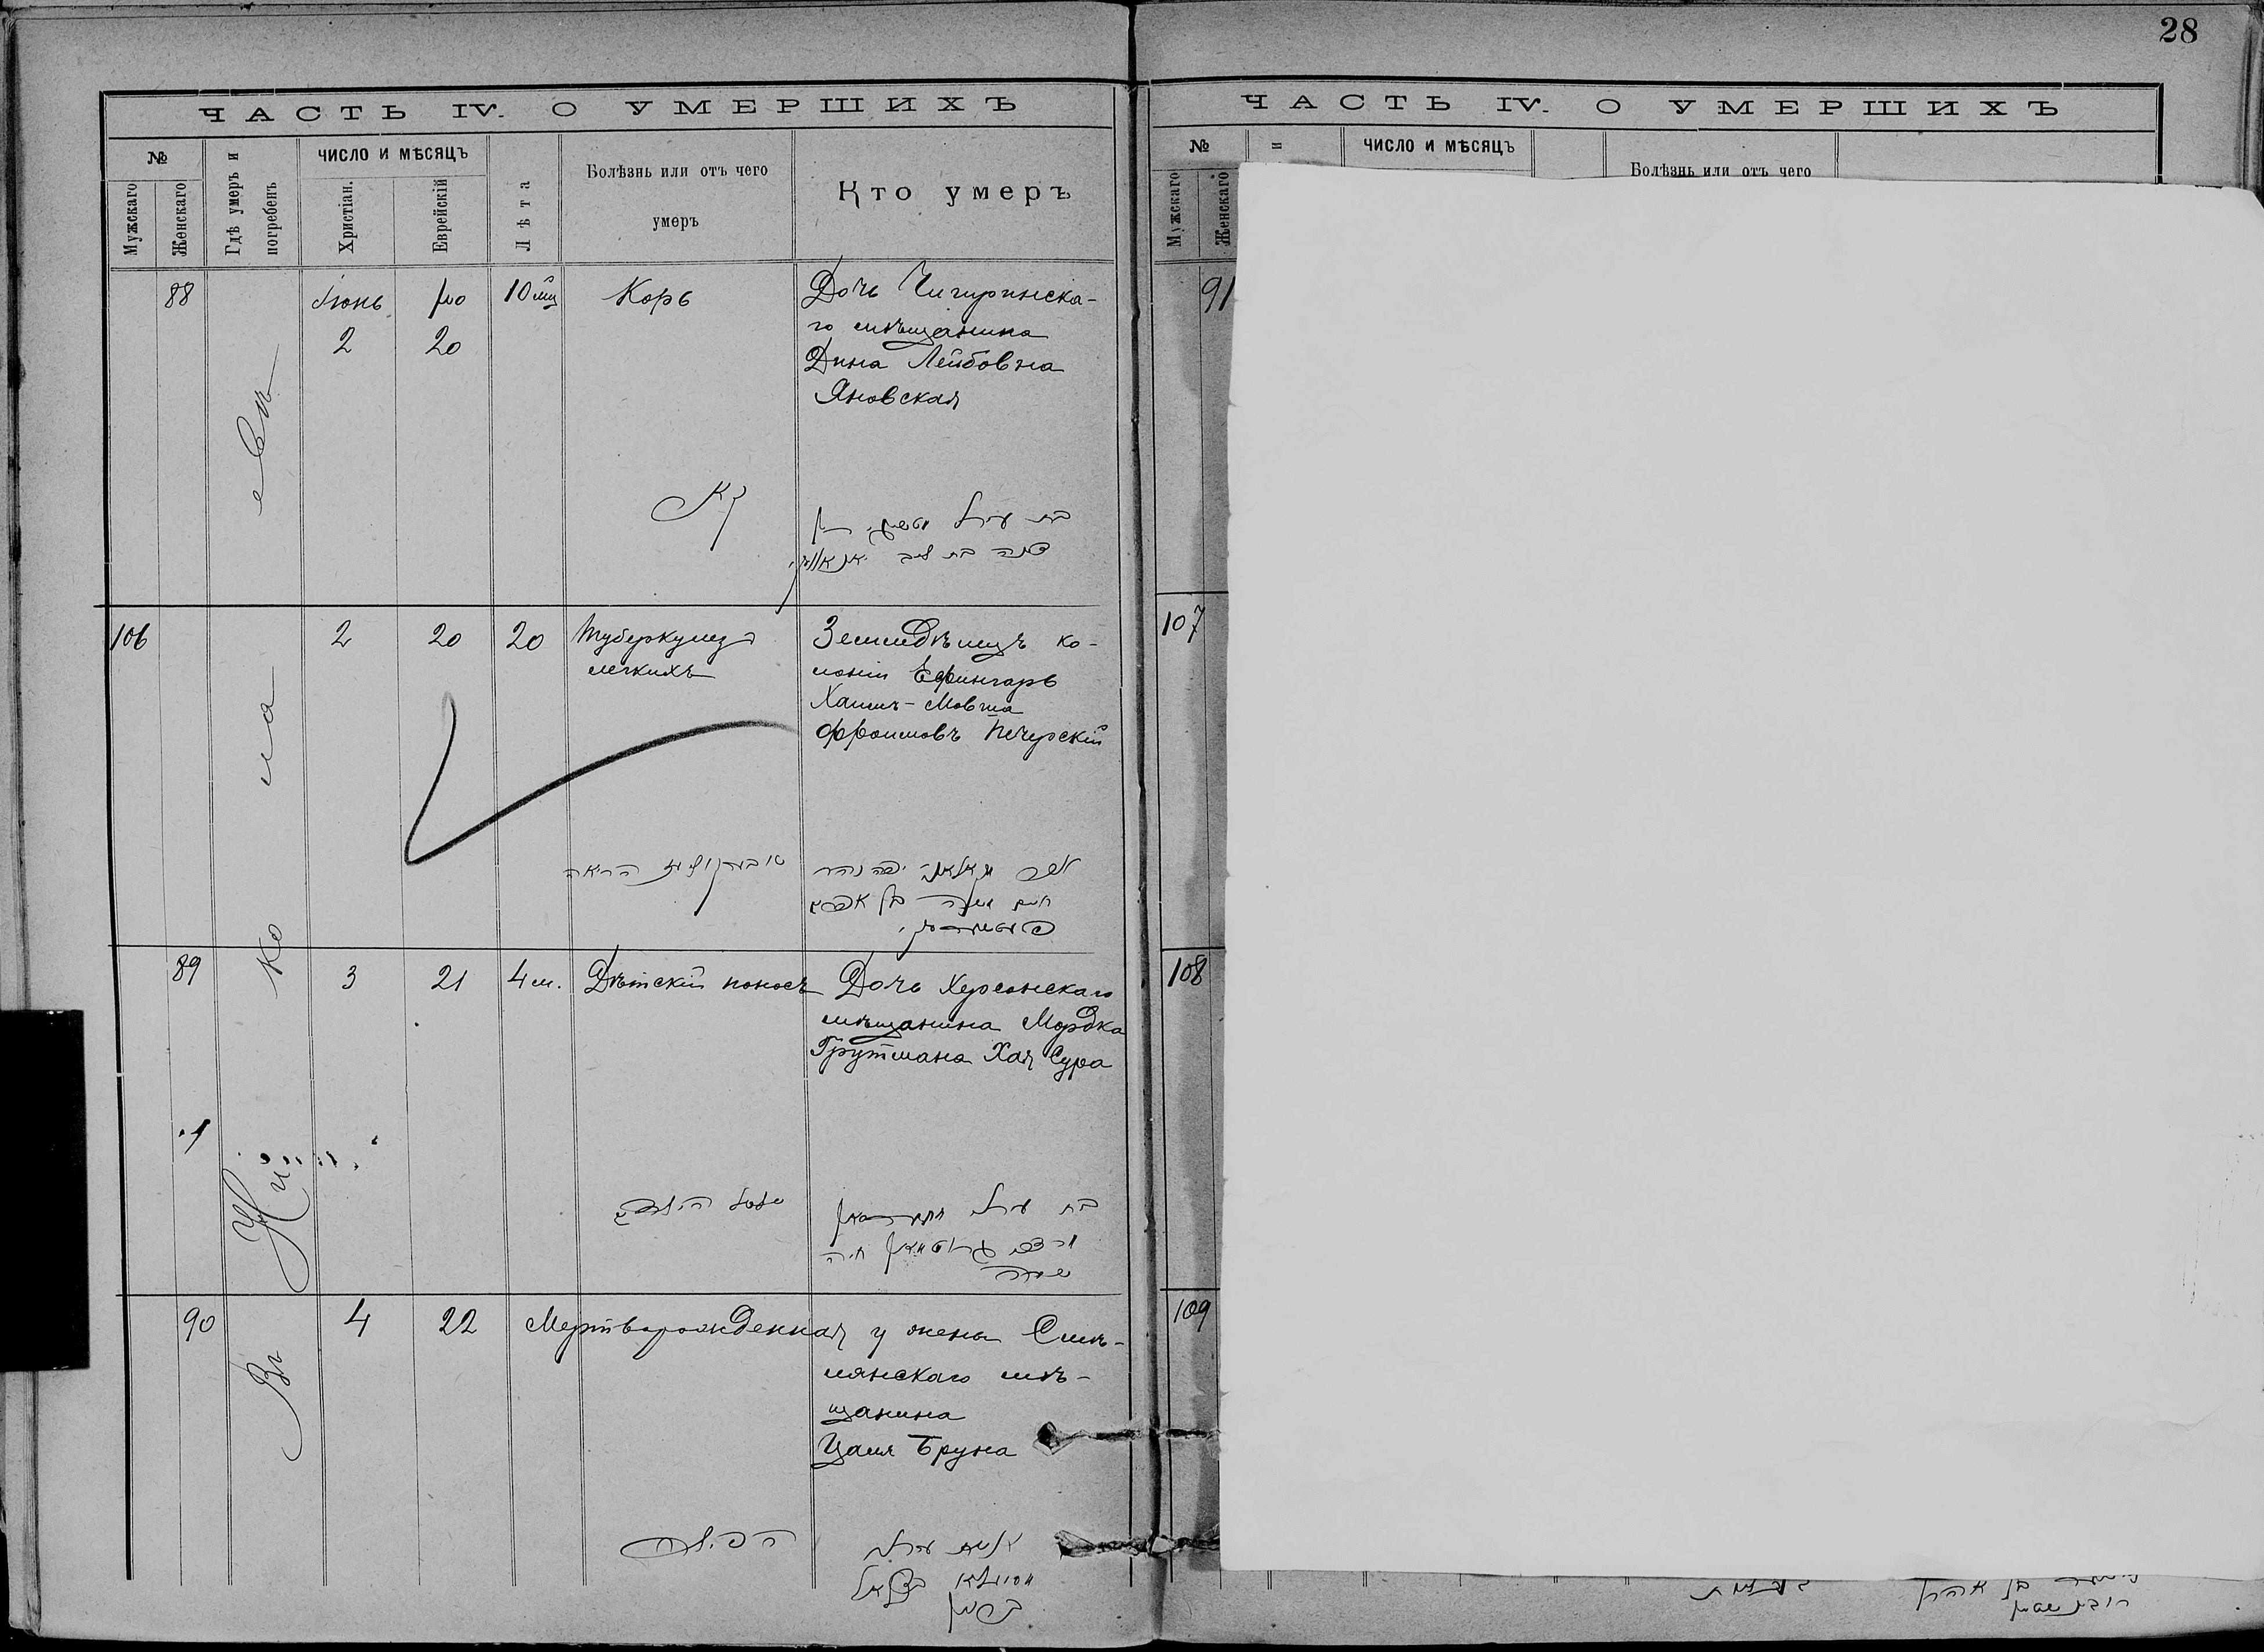 28
ЧАСТЬ IV. О УМЕРШИХЪ
№
Мужскаго
Женскаго
Гдѣ умеръ и погребенъ
ЧИСЛО И МѢСЯЦЪ
Христіан.
Еврейскій
Лѣта
Болѣзнь или отъ чего
умеръ
Кто умеръ
88
Іюнь
2
20
10
Корь
Дочь Чигиринска-
го мѣщанина
Дина Лейбовна
Яновская
דינה בת ליב
106
2
20
20
Туберкулезъ
легкихъ
Земледѣлецъ ко-
лоніи Ефингаръ
Хаимъ-Мовша
Фроимовъ Печерскій
הריאה
חיים משה בן אפרים
89
3
21
4 м.
Дѣтскій поносъ
Дочь Херсонскаго
мѣщанина Мордка
Грутмана Хая Сура
שלשול הילדים
מרדכי גרוטמאן חיה
שרה
90
4
22
Мертворожденная у жены Смѣ-
лянскаго мѣ-
щанина
Цаля Бруна
Въ Николаевѣ
ЧАСТЬ IV. О УМЕРШИХЪ
№
Мужскаго
Женскаго
ЧИСЛО И МѢСЯЦЪ
Болѣзнь или отъ чего
91
107
108
109
בן אהרן